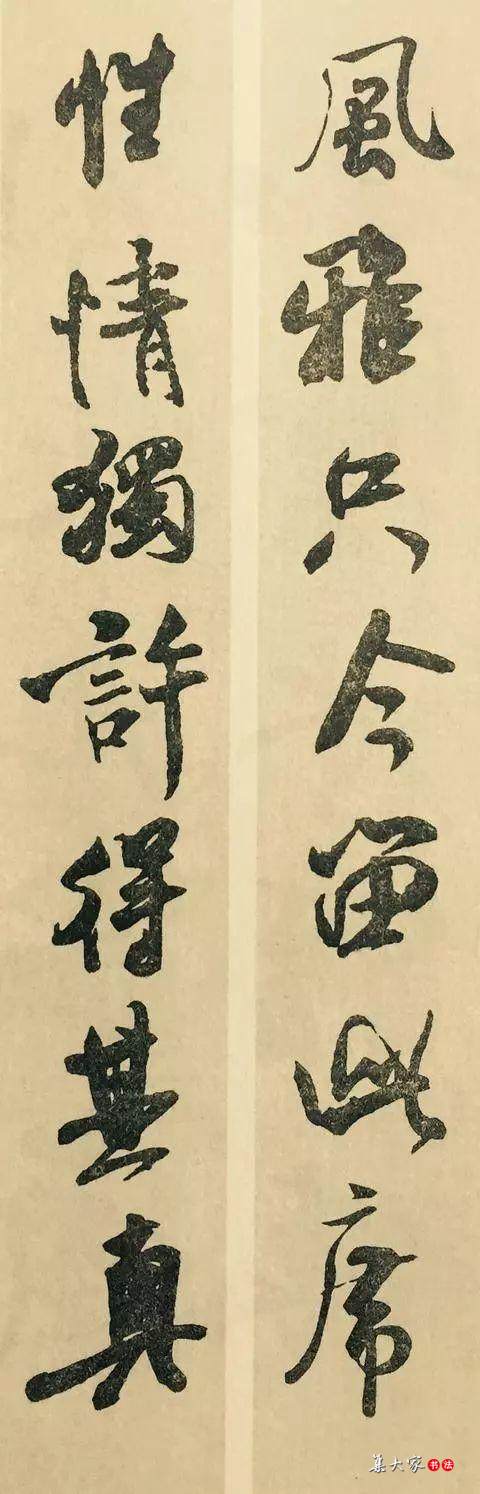 風雅只今留此席
性情獨許得其真
集大家书法